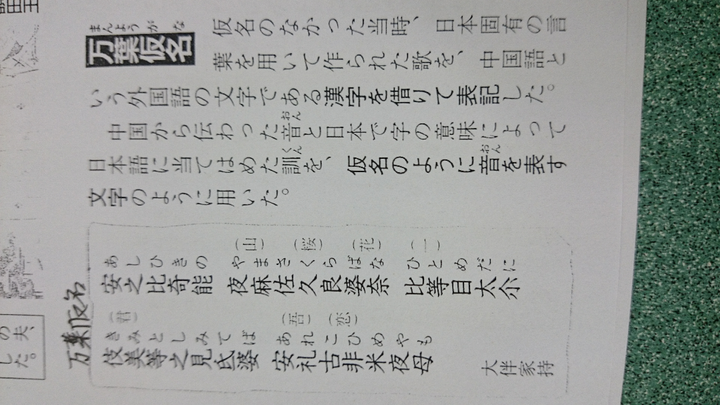 まんようがな
万葉仮名
仮名のなかった当時、日本固有の言
葉を用いて作られた歌を、中国語と
いう外国語の文字である漢字を借りて表記した。
おん
中国から伝わった音と日本で字の意味によって
くん おん
日本語に当てはめた訓を、仮名のように音を表す
文字のように用いた。
万葉仮名
(山) (桜) (花) (一)
あしひきの やまさくらばな ひとめだに
安之比奇能 夜麻佐久良婆奈 比等目太尓
(君) (吾) (恋)
きみとしみてば あれこひめやも
伎美等之見氐婆 安礼古非米夜母
大伴家持
の夫、
した。